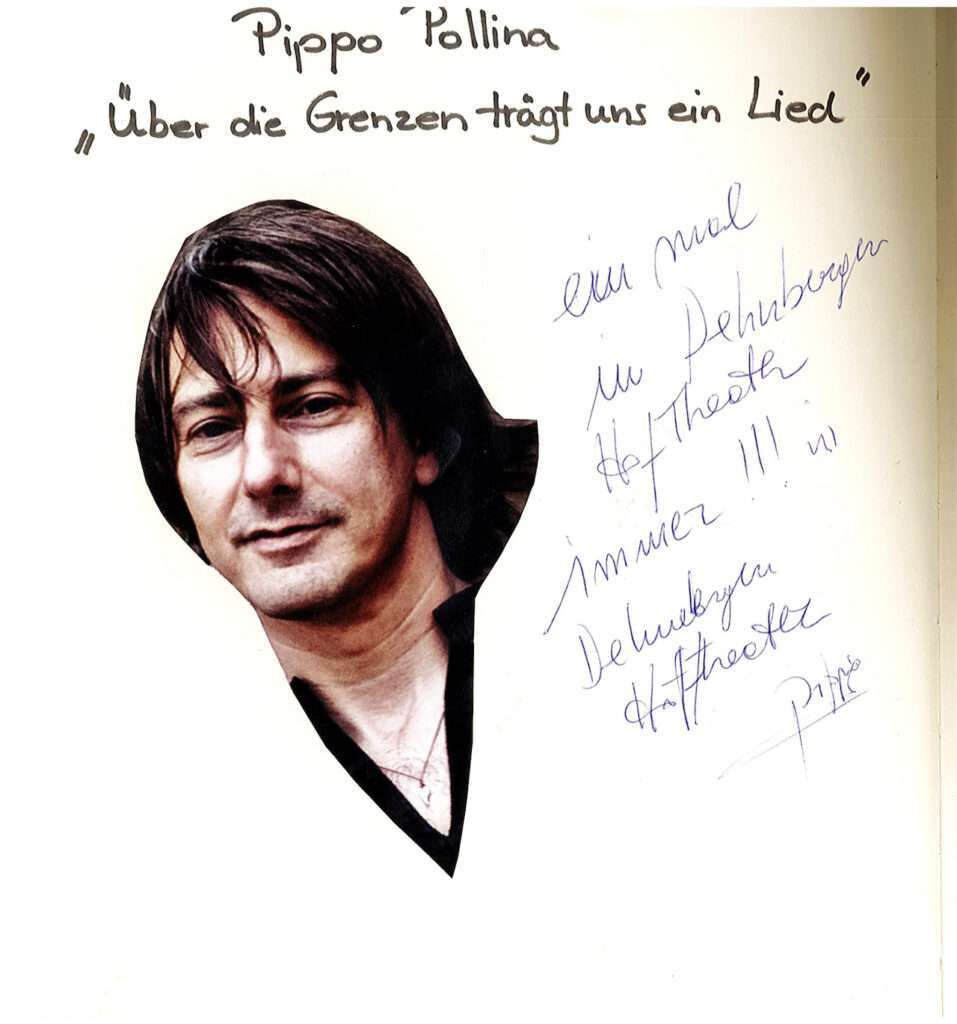 Pippo Pollina
„Über die Grenzen trägt uns ein Lied"
ein mal
in Dehnberger
Hof Theater
immer !!! in
Dehneberger
Hoftheater
Pippo